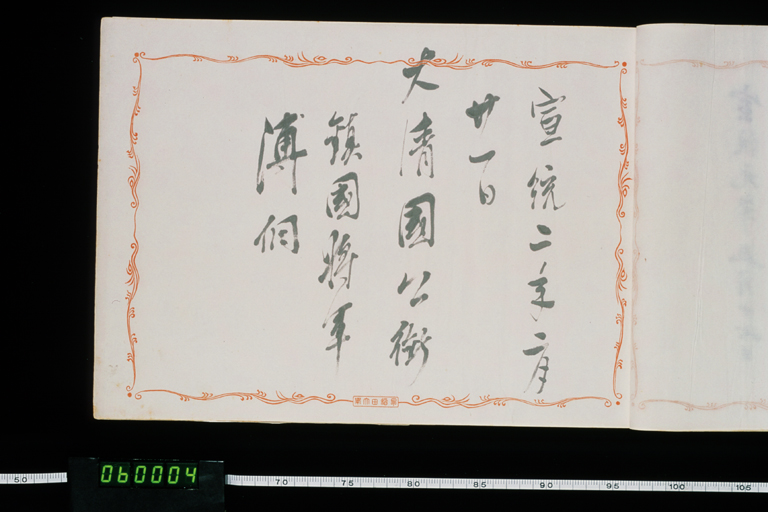 宣統二年二月
廿一日
大清國公銜
鎮國將軍
溥侗
060004
50
70
75
80
85
90
95
100
105